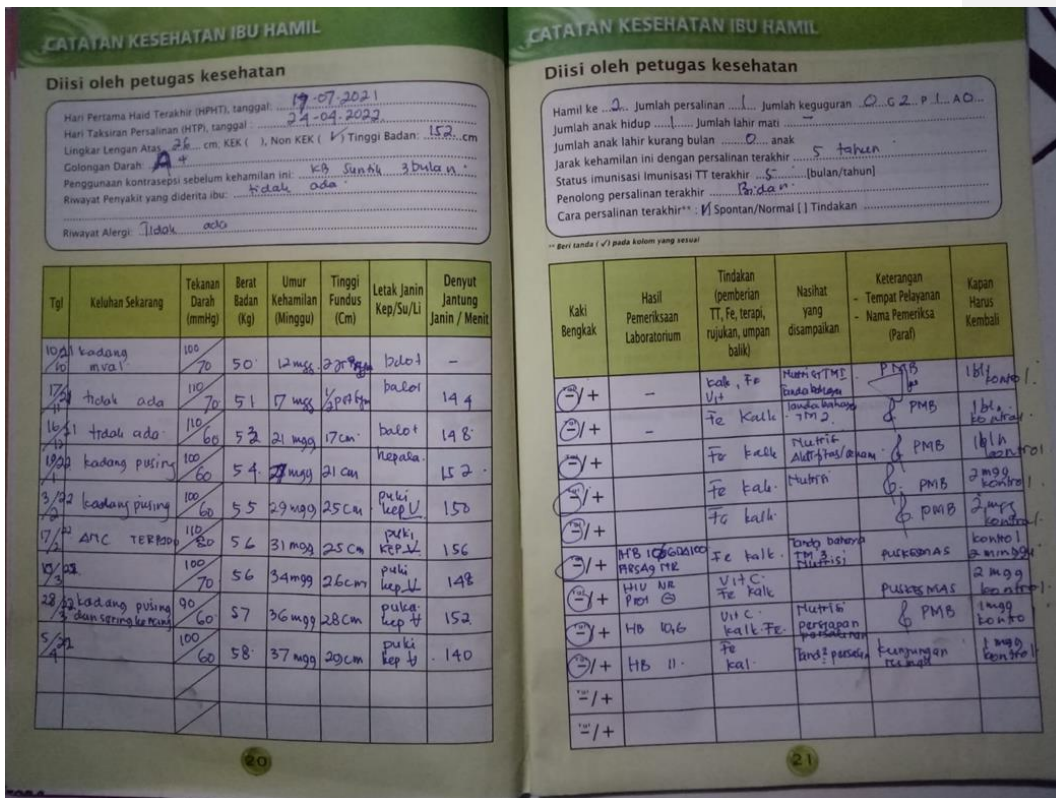 CATATAN KESEHATAN IBU HAMIL
Diisi oleh petugas kesehatan
Hari Pertama Haid Terakhir (HPHT), tanggal: 17-07-2021
Hari Taksiran Persalinan (HTP), tanggal : 24-04-2022
Lingkar Lengan Atas: 26 cm: KEK ( ), Non KEK ( √ ) Tinggi Badan: 152 cm
Golongan Darah: A+
Penggunaan kontrasepsi sebelum kehamilan ini: KB Suntik 3 bulan
Riwayat Penyakit yang diderita ibu: tidak ada
Riwayat Alergi: Tidak ada
Tgl Keluhan Sekarang Tekanan Darah (mmHg) Berat Badan (Kg) Umur Kehamilan (Minggu) Tinggi Fundus (Cm) Letak Janin Kep/Su/Li Denyut Jantung Janin / Menit
kadang mual 100/70 50 12 mgg -
tidak ada 110/70 51 17 mgg 144
tidak ada 110/60 53 21 mgg 17cm balot 148
kadang pusing 100/60 54 mgg 21 cm kepala 152
3/22 2 kadang pusing 100/60 55 29 mgg 25cm puki kep U 150
17/22 2 ANC TERPADU 110/80 56 31 mgg 25cm puki kep U 156
100/70 56 34mgg 26cm puki kep U 148
28/22 3 kadang pusing dan sering kencang 90/60 57 36 mgg 28cm puka kep U 152
5/22 4 100/60 58 37 mgg 29cm puki kep U 140
20
CATATAN KESEHATAN IBU HAMIL
Diisi oleh petugas kesehatan
Hamil ke 2 Jumlah persalinan 1 Jumlah keguguran 0 G 2 P 1 A 0
Jumlah anak hidup 1 Jumlah lahir mati -
Jumlah anak lahir kurang bulan 0 anak
Jarak kehamilan ini dengan persalinan terakhir 5 tahun
Status imunisasi Imunisasi TT terakhir 5 [bulan/tahun]
Penolong persalinan terakhir Bidan
Cara persalinan terakhir** : [√] Spontan/Normal [ ] Tindakan
** Beri tanda (√) pada kolom yang sesuai
Kaki Bengkak Hasil Pemeriksaan Laboratorium Tindakan (pemberian TT, Fe, terapi, rujukan, umpan balik) Nasihat yang disampaikan Keterangan - Tempat Pelayanan - Nama Pemeriksa (Paraf) Kapan Harus Kembali
-/+ - kalk, Fe Vit Nutrisi TM I tanda bahaya PMB 1 bln kontrol
-/+ - Fe Kalk tanda bahaya TM2 PMB 1 bln kontrol
-/+ Fe kalk Nutrisi PMB 1 bln kontrol
-/+ Fe kalk Nutrisi PMB 2 mgg kontrol
-/+ Fe kalk PMB 2 mgg kontrol
-/+ HBSAg NR Fe kalk tanda bahaya TM 3 Nutrisi PUSKESMAS kontrol 2 minggu
-/+ HIV NR Prot ⊖ Vit C Fe kalk PUSKESMAS 2 mgg kontrol
-/+ HB 10,6 Vit C kalk Fe Nutrisi persiapan persalinan PMB 1 mgg kontrol
-/+ HB 11 Fe kal kunjungan 1 mgg kontrol
-/+
-/+
21